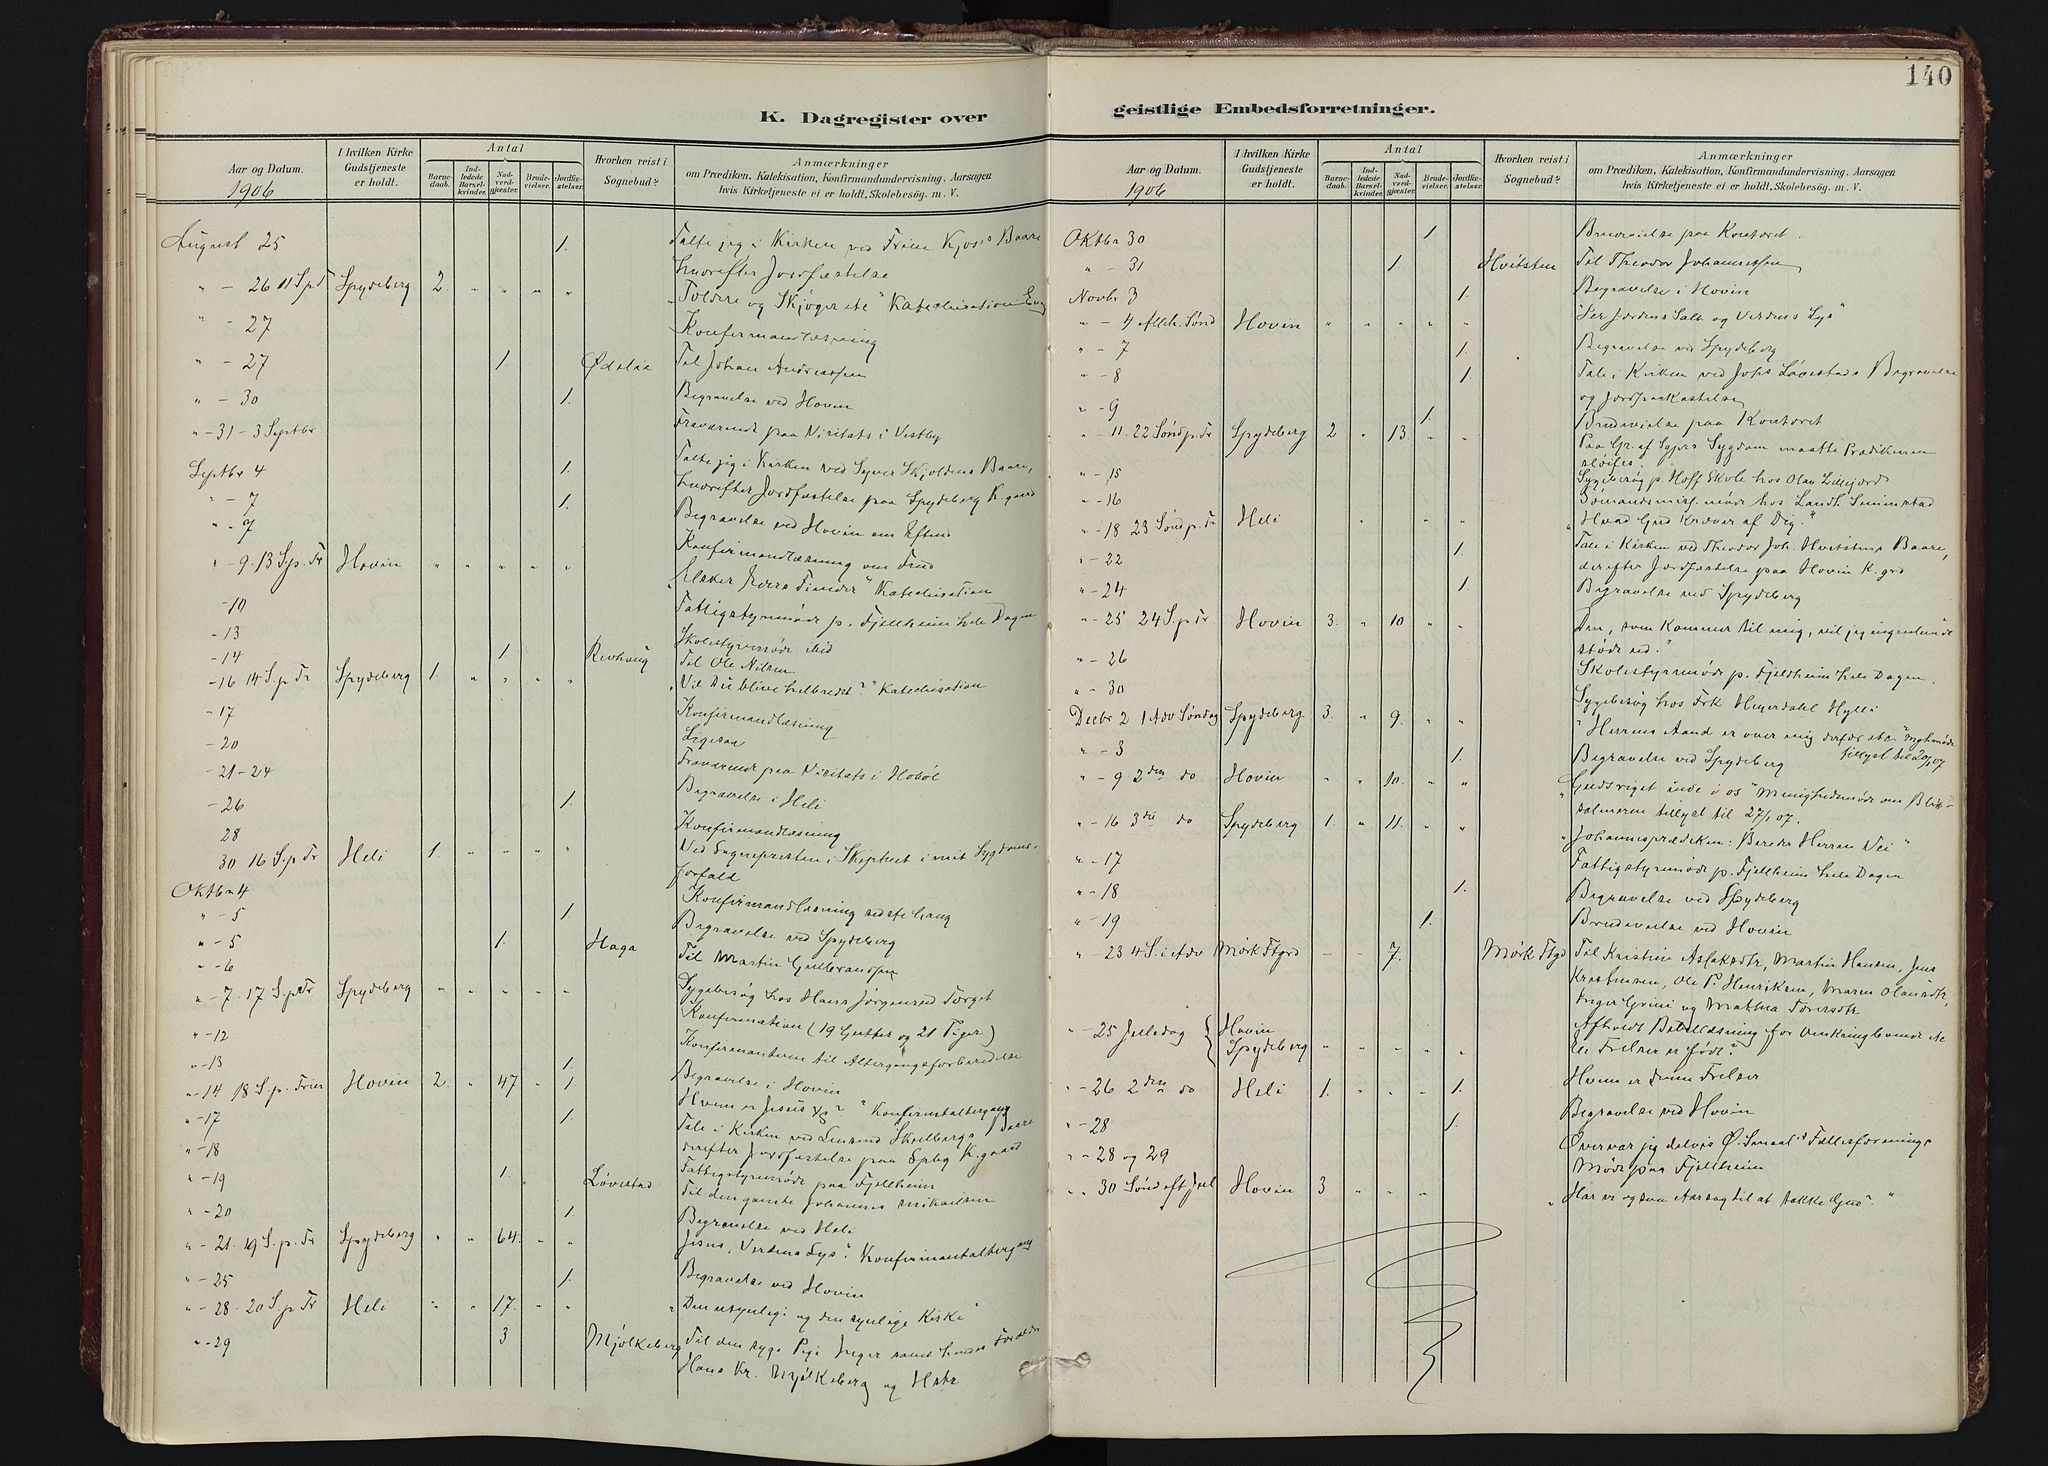 140
K. Dagregister over geistlige Embedsforretninger.
Aar og Datum.
1906
I hvilken Kirke Gudstjeneste er holdt.
Antal
Barnedaab.
Indledede Barselkvinder.
Nadverdgjester.
Brudevielser.
Jordfæstelser.
Hvorhen reist i Sognebud?
Anmærkninger
om Prædiken, Katekisation, Konfirmandundervisning. Aarsagen
hvis Kirketjeneste ei er holdt, Skolebesøg. m. V.
August 25 1. Talte jeg i Kirken ved Baare
hvorefter Jordfæstelse
" - 26 11 S p T Spydeberg 2. " " " " "Toldere og Skjøger etc" Katechisation
" - 27 Konfirmandlæsning
" - 27 1. Ødalie Til Johan Andreassen
" - 30 1. Begravelse ved Hovin
" - 31 - 3 Septbr Fraværende paa Visitats i Vestby
Septbr 4 1. Talte jeg i Kirken ved Syver Skjoldens Baare,
hvorefter Jordfæstelse paa Spydeberg K.gaard
" - 7 1. Begravelse ved Hovin om Efterm
" - 7 Konfirmandlæsning om
" - 9. 13 S p. Tr Hovin " " " " " "Elsker Eders Fiender" Katechisation
- 10 Fattigstyremøde p. Fjellheim hele Dagen
- 13 Skolestyremøde ibid
- 14 1 Til Ole Nilsen
- 16 14 S. p Tr Spydeberg 1. " " " " "Vil du blive helbredet?" Katechisation
- 17 Konfirmandlæsning
- 20 Ligesaa
- 21 - 24 Fraværende paa Visitats i Hobøl
- 26 1. Begravelse i Heli
28 Konfirmandlæsning
30 16 S. p Tr Heli 1. " " " " Ved Sognepresten i Skiptvet i mit Sygdoms-
forfald
Oktbr 4 Konfirmandlæsning sidste Gang
" - 5 1. Begravelse ved Spydeberg
" - 5 1. Haga Til Martin Gulbrandsen
" - 6 Sygebesøg hos Hans Jørgensen Torget
" - 7. 17 S. p Tr Spydeberg " " " " " Konfirmation (19 Gutter og 21 Piger)
" - 12 Konfirmanterne til Altergangsforberedelse
" - 13 1. Begravelse i Hovin
" - 14 18 S. p. Trin Hovin 2. " 47 " 1. Hvem er Jesus Xs?" Konfirmantaltergang
" - 17 1. Tale i Kirken ved Baare
derefter Jordfæstelse paa Spbg K.gaard
" - 18 Fattigstyremøde paa Fjellheim
" - 19 1. Løvestad Til den gamle Johannes Mikaelsen
" - 20 1. Begravelse ved Heli
" - 21. 19 S. p. Tr Spydeberg " " 64. " " Jesus, Verdens Lys". Konfirmantaltergang
" - 25 1. Begravelse ved Hovin
" - 28. 20 S. p Tr Heli " " 17. " " "Den usynlige og den synlige Kirke"
" - 29 3 Mjølkeberg Til den syge Pige Inger samt hendes Forældre
Hans Kr. Mjølkeberg og Hstr
Aar og Datum.
1906
I hvilken Kirke Gudstjeneste er holdt.
Antal
Barnedaab.
Indledede Barselkvinder.
Nadverdgjester.
Brudevielser.
Jordfæstelser.
Hvorhen reist i Sognebud?
Anmærkninger
om Prædiken, Katekisation, Konfirmandundervisning. Aarsagen
hvis Kirketjeneste ei er holdt, Skolebesøg. m. V.
Oktbr 30 1. Brudevielse paa Kontoret.
" - 31 1. Hvitsten Til Theodor Johannessen
Novbr 3 1. Begravelse i Hovin
" - 4 Alleh. Sønd Hovin " " " " " "Jer Jordens Salt og Verdens Lys"
" - 7 1. Begravelse ved Spydeberg
" - 8 1. Tale i Kirken ved Johs Løvestads Begravelse
og Jordpaakastelse
" - 9 1. Brudevielse paa Kontoret
" - 11. 22 Sønd p. Tr Spydeberg 2 " 13. " " Paa Gr. af Sygdom maatte Prædikenen
sløifes.
" - 15 Sygebesøg p. Hoff Skole hos Olav Lillejord
" - 16 Sømandsmis. møde hos Landh.
" - 18 23 Sønd p. Tr Heli " " " "Hvad Gud kræver af Dig."
" - 22 1. Tale i Kirken ved Theodor Joh. Hvitstens Baare,
derefter Jordfæstelse paa Hovin K. grd
" - 24 1. Begravelse ved Spydeberg
" - 25 24 S. p Tr Hovin 3. " 10 " " Den, som kommer til mig, vil jeg ingenlunde
støde ud."
" - 26 Skolestyremøde p. Fjeldheim hele Dagen.
" - 30 Sygebesøg hos Frk Heyerdahl Hylli
Decbr 2 1 Adv Søndag Spydeberg 3. " 9. " " "Herrens Aand er over mig derfor etc"
tillyst til 20/1 07
" - 3 1. Begravelse ved Spydeberg
" - 9 2den do Hovin " " 10. " " "Gudsriget inde i os" Menighedsmøde om Blix
salmerne tillyst til 27/1 07.
" - 16 3die do Spydeberg 1. " 11. " " "Johannesprædiken: Bereder Herrens Vei"
" - 17 Fattigstyremøde p. Fjellheim hele Dagen
" - 18 1. Begravelse ved Spydeberg
" - 19 1. Brudevielse ved Hovin
" - 23 4 S. i Adv Mørk Ftgrd - - 7. Mørk Ftgd Til Kristine Aslaksdtr, Martin Hansen, Jens
Kristensen, Ole P. Henriksen, Maren Olausdtr,
Inger Grini og Mathea Torersdtr
Afholdt Bibellæsning for Omkringboende etc
" - 25 Juledag { Hovin
Spydeberg " " " " " En Frelser er født"
" - 26 2den do Heli 1. " " " 1. Hvem er denne Frelser
Begravelse ved Hovin
" - 28 1.
" - 28 og 29 Overvar jeg delvis Ø. Smaal.s Fællesforenings
Møde paa Fjellheim
" " 30 Sønd eft Jul Hovin 3 " " " "Har vi ogsaa Aarsag til at takke Gud?"